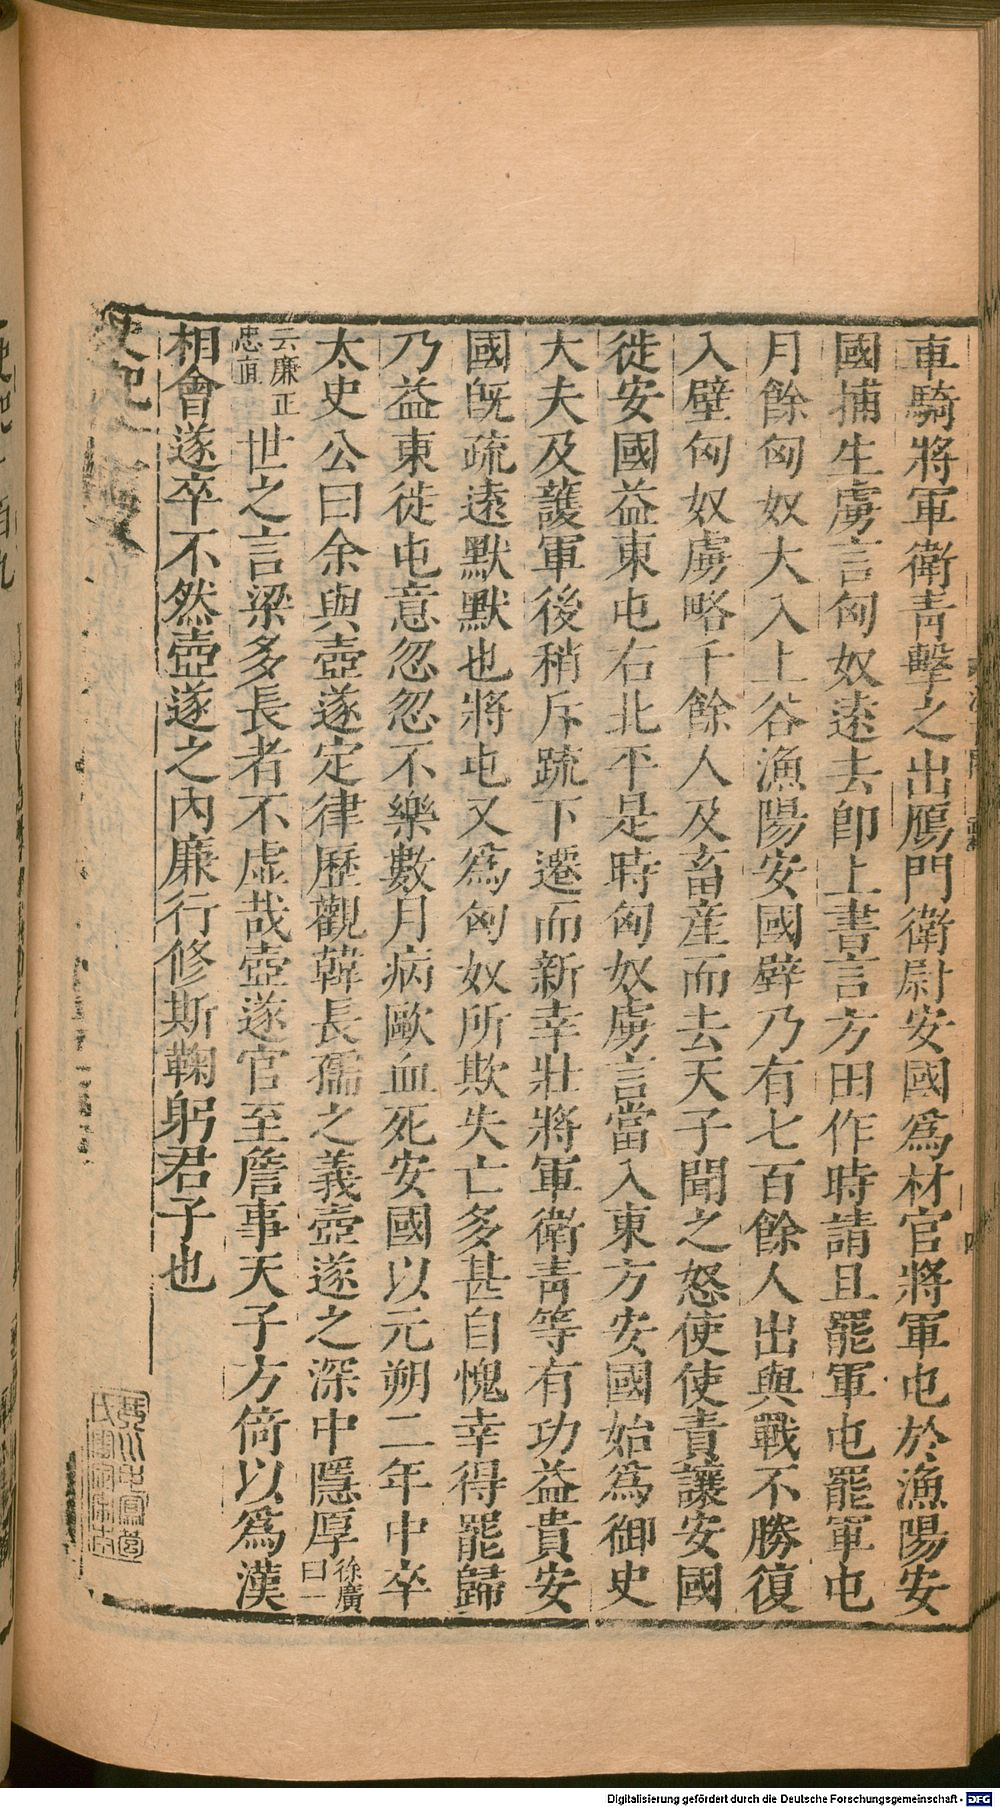 車騎將軍衛青擊之出鴈門衛尉安國爲材官將軍屯於漁陽安
國捕生虜言匈奴遠去卽上書言方田作時請且罷軍屯罷軍屯
月餘匈奴大入上谷漁陽安國壁乃有七百餘人出與戰不勝復
入壁匈奴虜略千餘人及畜產而去天子聞之怒使使責讓安國
徙安國益東屯右北平是時匈奴虜言當入東方安國始爲御史
大夫及護軍後稍斥疏下遷而新幸壯將軍衛青等有功益貴安
國旣疏遠默默也將屯又爲匈奴所欺失亡多甚自愧幸得罷歸
乃益東徙屯意忽忽不樂數月病歐血死安國以元朔二年中卒
太史公曰余與壺遂定律歷觀韓長孺之義壺遂之深中隱厚徐廣曰一
云廉正忠直世之言梁多長者不虛哉壺遂官至詹事天子方倚以爲漢
相會遂卒不然壺遂之內廉行修斯鞠躬君子也
史記一百
Digitalisierung gefördert durch die Deutsche Forschungsgemeinschaft - DFG